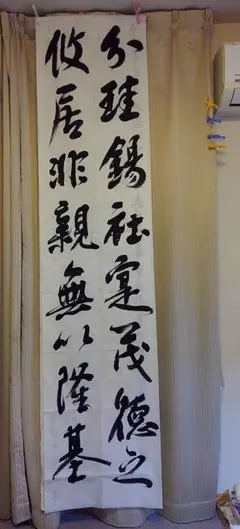 分珪錫社寔茂德之
攸居非親無以隆基